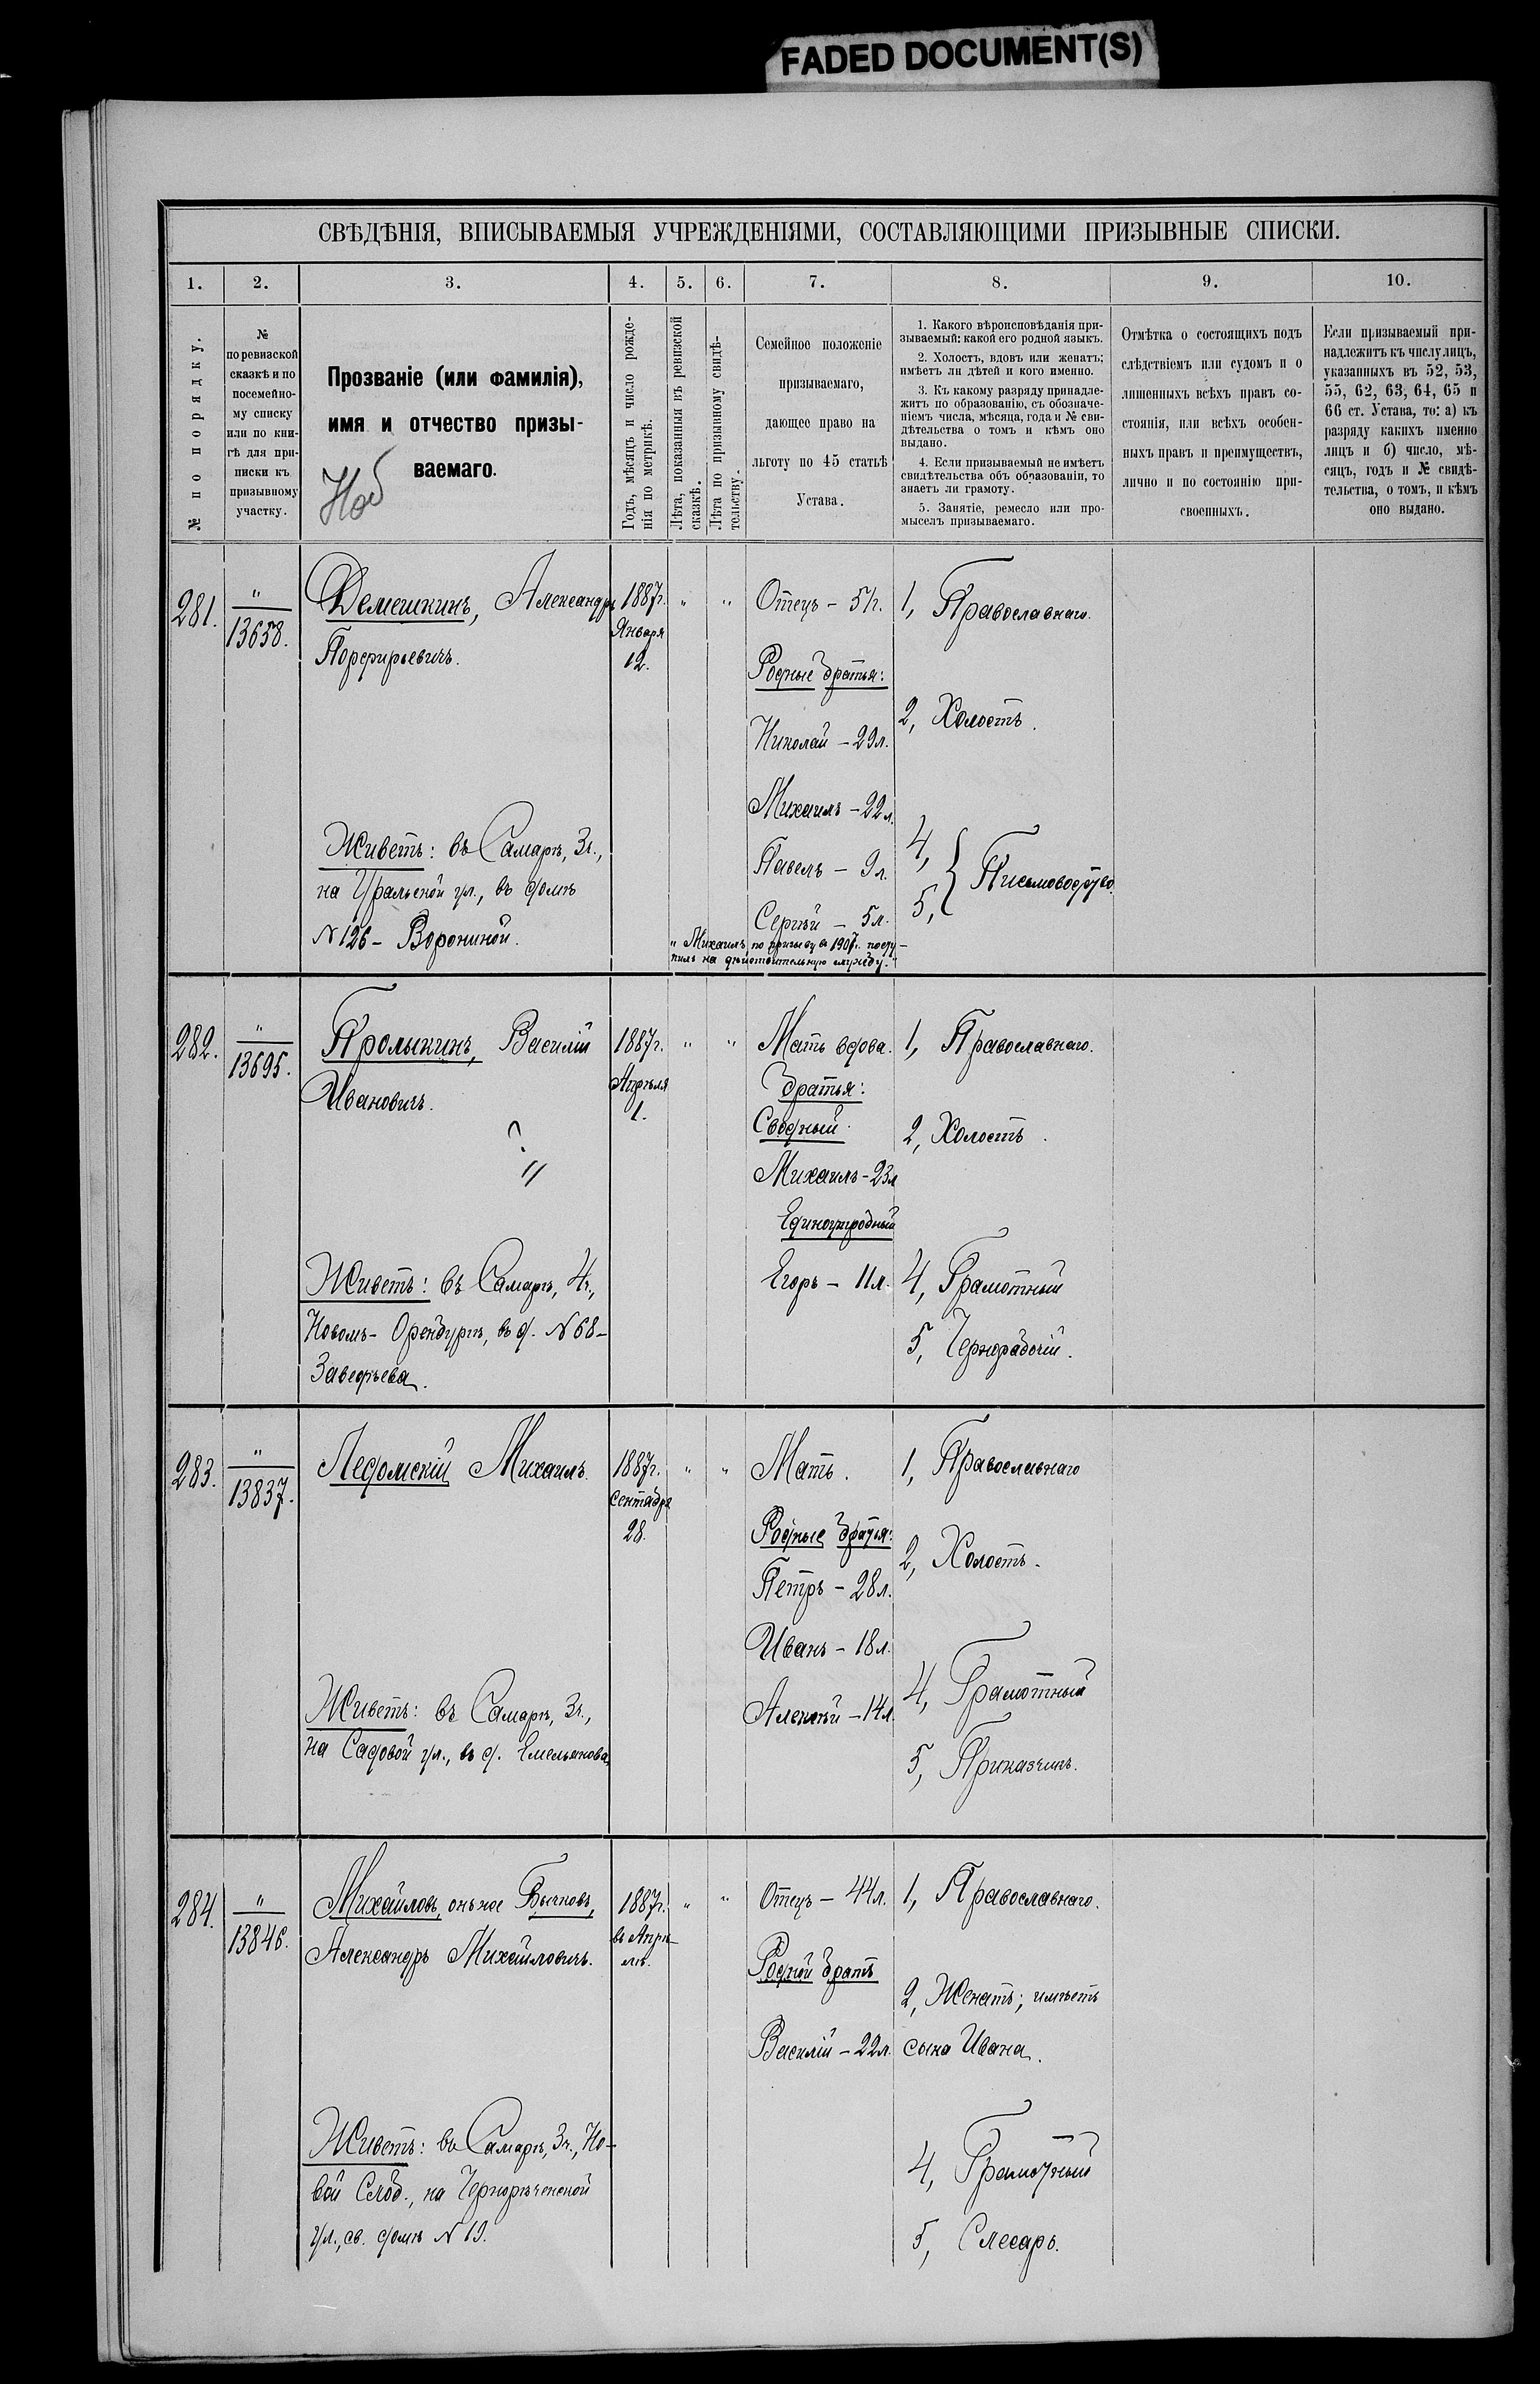 FADED DOCUMENT(S)
СВѢДѢНІЯ, ВПИСЫВАЕМЫЯ УЧРЕЖДЕНІЯМИ, СОСТАВЛЯЮЩИМИ ПРИЗЫВНЫЕ СПИСКИ.
1. 2. 3. 4. 5. 6. 7. 8. 9. 10.
№ по порядку.
№
по ревизской
сказкѣ и по
посемейно-
му списку
или по кни-
гѣ для при-
писки къ
призывному
участку.
Прозваніе (или фамилія),
имя и отчество призы-
ваемаго.
Годъ, мѣсяцъ и число рожде-
нія по метрикѣ.
Лѣта, показанныя въ ревизской
сказкѣ.
Лѣта по призывному свидѣ-
тельству.
Семейное положеніе
призываемаго,
дающее право на
льготу по 45 статьѣ
Устава.
1. Какого вѣроисповѣданія при-
зываемый: какой его родной языкъ.
2. Холостъ, вдовъ или женатъ;
имѣетъ ли дѣтей и кого именно.
3. Къ какому разряду принадле-
житъ по образованію, съ обозначе-
ніемъ числа, мѣсяца, года и № сви-
дѣтельства о томъ и кѣмъ оно
выдано.
4. Если призываемый не имѣетъ
свидѣтельства объ образованіи, то
знаетъ ли грамоту.
5. Занятіе, ремесло или про-
мыселъ призываемаго.
Отмѣтка о состоящихъ подъ
слѣдствіемъ или судомъ и о
лишенныхъ всѣхъ правъ со-
стоянія, или всѣхъ особен-
ныхъ правъ и преимуществъ,
лично и по состоянію при-
своенныхъ.
Если призываемый при-
надлежитъ къ числу лицъ,
указанныхъ въ 52, 53,
55, 62, 63, 64, 65 и
66 ст. Устава, то: а) къ
разряду какихъ именно
лицъ и б) число, мѣ-
сяцъ, годъ и № свидѣ-
тельства, о томъ, и кѣмъ
оно выдано.
281.
"
13658.
Демешкинъ, Александръ
Порфирьевичъ.
Живетъ: въ Самарѣ, 3ч.,
на Уральской ул., въ домѣ
№126 – Ворониной.
1887г.
Января
12.
" "
Отецъ – 51г.
Родные братья:
Николай – 29л.
Михаилъ – 22л.
Павелъ – 9л.
Сергѣй – 5л.
"Михаилъ, по призыву въ 1907г. посту-
пилъ на дѣйствительную службу."
1, Православнаго.
2, Холостъ.
4,
5, } Письмоводство.
282.
"
13695.
Пролыкинъ, Василій
Ивановичъ.
?
"
Живетъ: въ Самарѣ, 4ч.,
Новомъ-Оренбургѣ, въ д. №68 –
Заведѣева.
1887г.
Апрѣля
1.
" "
Мать вдова.
Братья:
Сводный.
Михаилъ – 23л
Единоутробный
Егоръ – 11л.
1, Православнаго.
2, Холостъ.
4, Грамотный
5, Чернорабочій.
283.
"
13837.
Ледомскій Михаилъ.
Живетъ: въ Самарѣ, 3ч.,
на Садовой ул., въ д. Емельянова
1887г.
Сентября
28.
" "
Мать.
Родные братья:
Петръ – 28л.
Иванъ – 18л.
Алексѣй – 14л.
1, Православнаго
2, Холостъ.
4, Грамотный
5, Приказчикъ.
284.
"
13846.
Михайловъ, онъ же Бычковъ,
Александръ Михайловичъ.
Живетъ: въ Самарѣ, 3ч., Но-
вой Слоб., на Чернорѣченской
ул., св. домѣ №19.
1887г.
въ Апрѣ-
лѣ.
" "
Отецъ – 44л.
Родной братъ
Василій – 22л.
1, Православнаго.
2, Женатъ; имѣетъ
сына Ивана.
4, Грамотный
5, Слесарь.